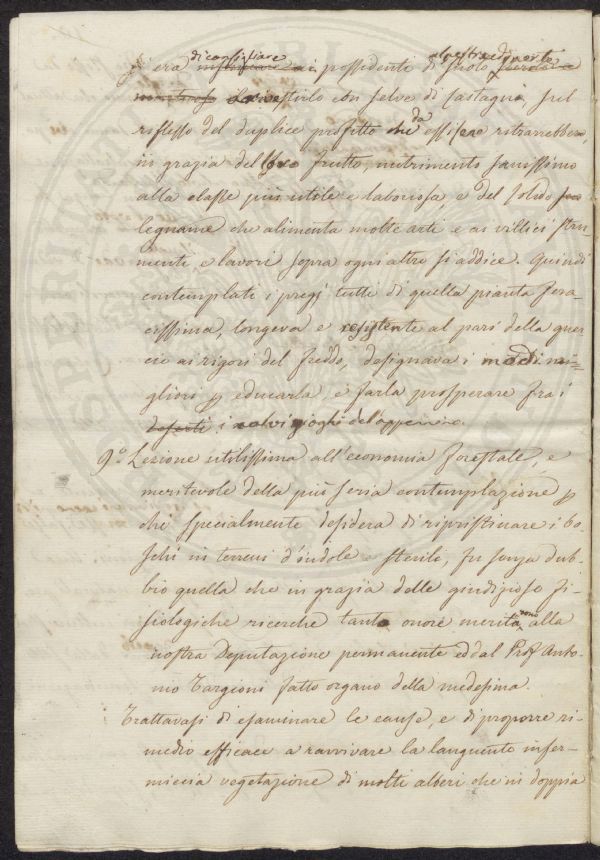 di consigliare alpestre ed inerte
era ai possidenti di suolo
investirlo con selve di Castagni, sul
riflesso del duplice profitto che da essi ne ritrarrebbero,
in grazia del loro frutto, nutrimento sanissimo
alla classe più utile e laboriosa e del solido
legname che alimenta molte arti e ai villici stru
menti, e lavori sopra ogni altro si addice. Quindi
contemplati i pregj tutti di quella pianta fera
cissima, longeva e resistente al pari della quer
cio ai rigori del freddo, designava i modi mi=
gliori p educarla, e farla prosperare fra i
deserti i salvi gioghi dell'appennino.
9.o Lezione utilissima all'economia forestale, e
meritevole della più seria contemplazione p
chi specialmente desidera di ripristinare i bo
schi in terreni d'indole sterile, fu senza dub
bio quella che in grazia delle giudiziose fi
siologiche ricerche tanto onore meritarono alla
nostra Deputazione permanente ed al Prof. Anto
nio Targioni fatto organo della medesima.
Trattavasi di esaminare le cause, e di proporre ri
medio efficace a ravvivare la languente infer
miccia vegetazione di molti alberi che in doppia